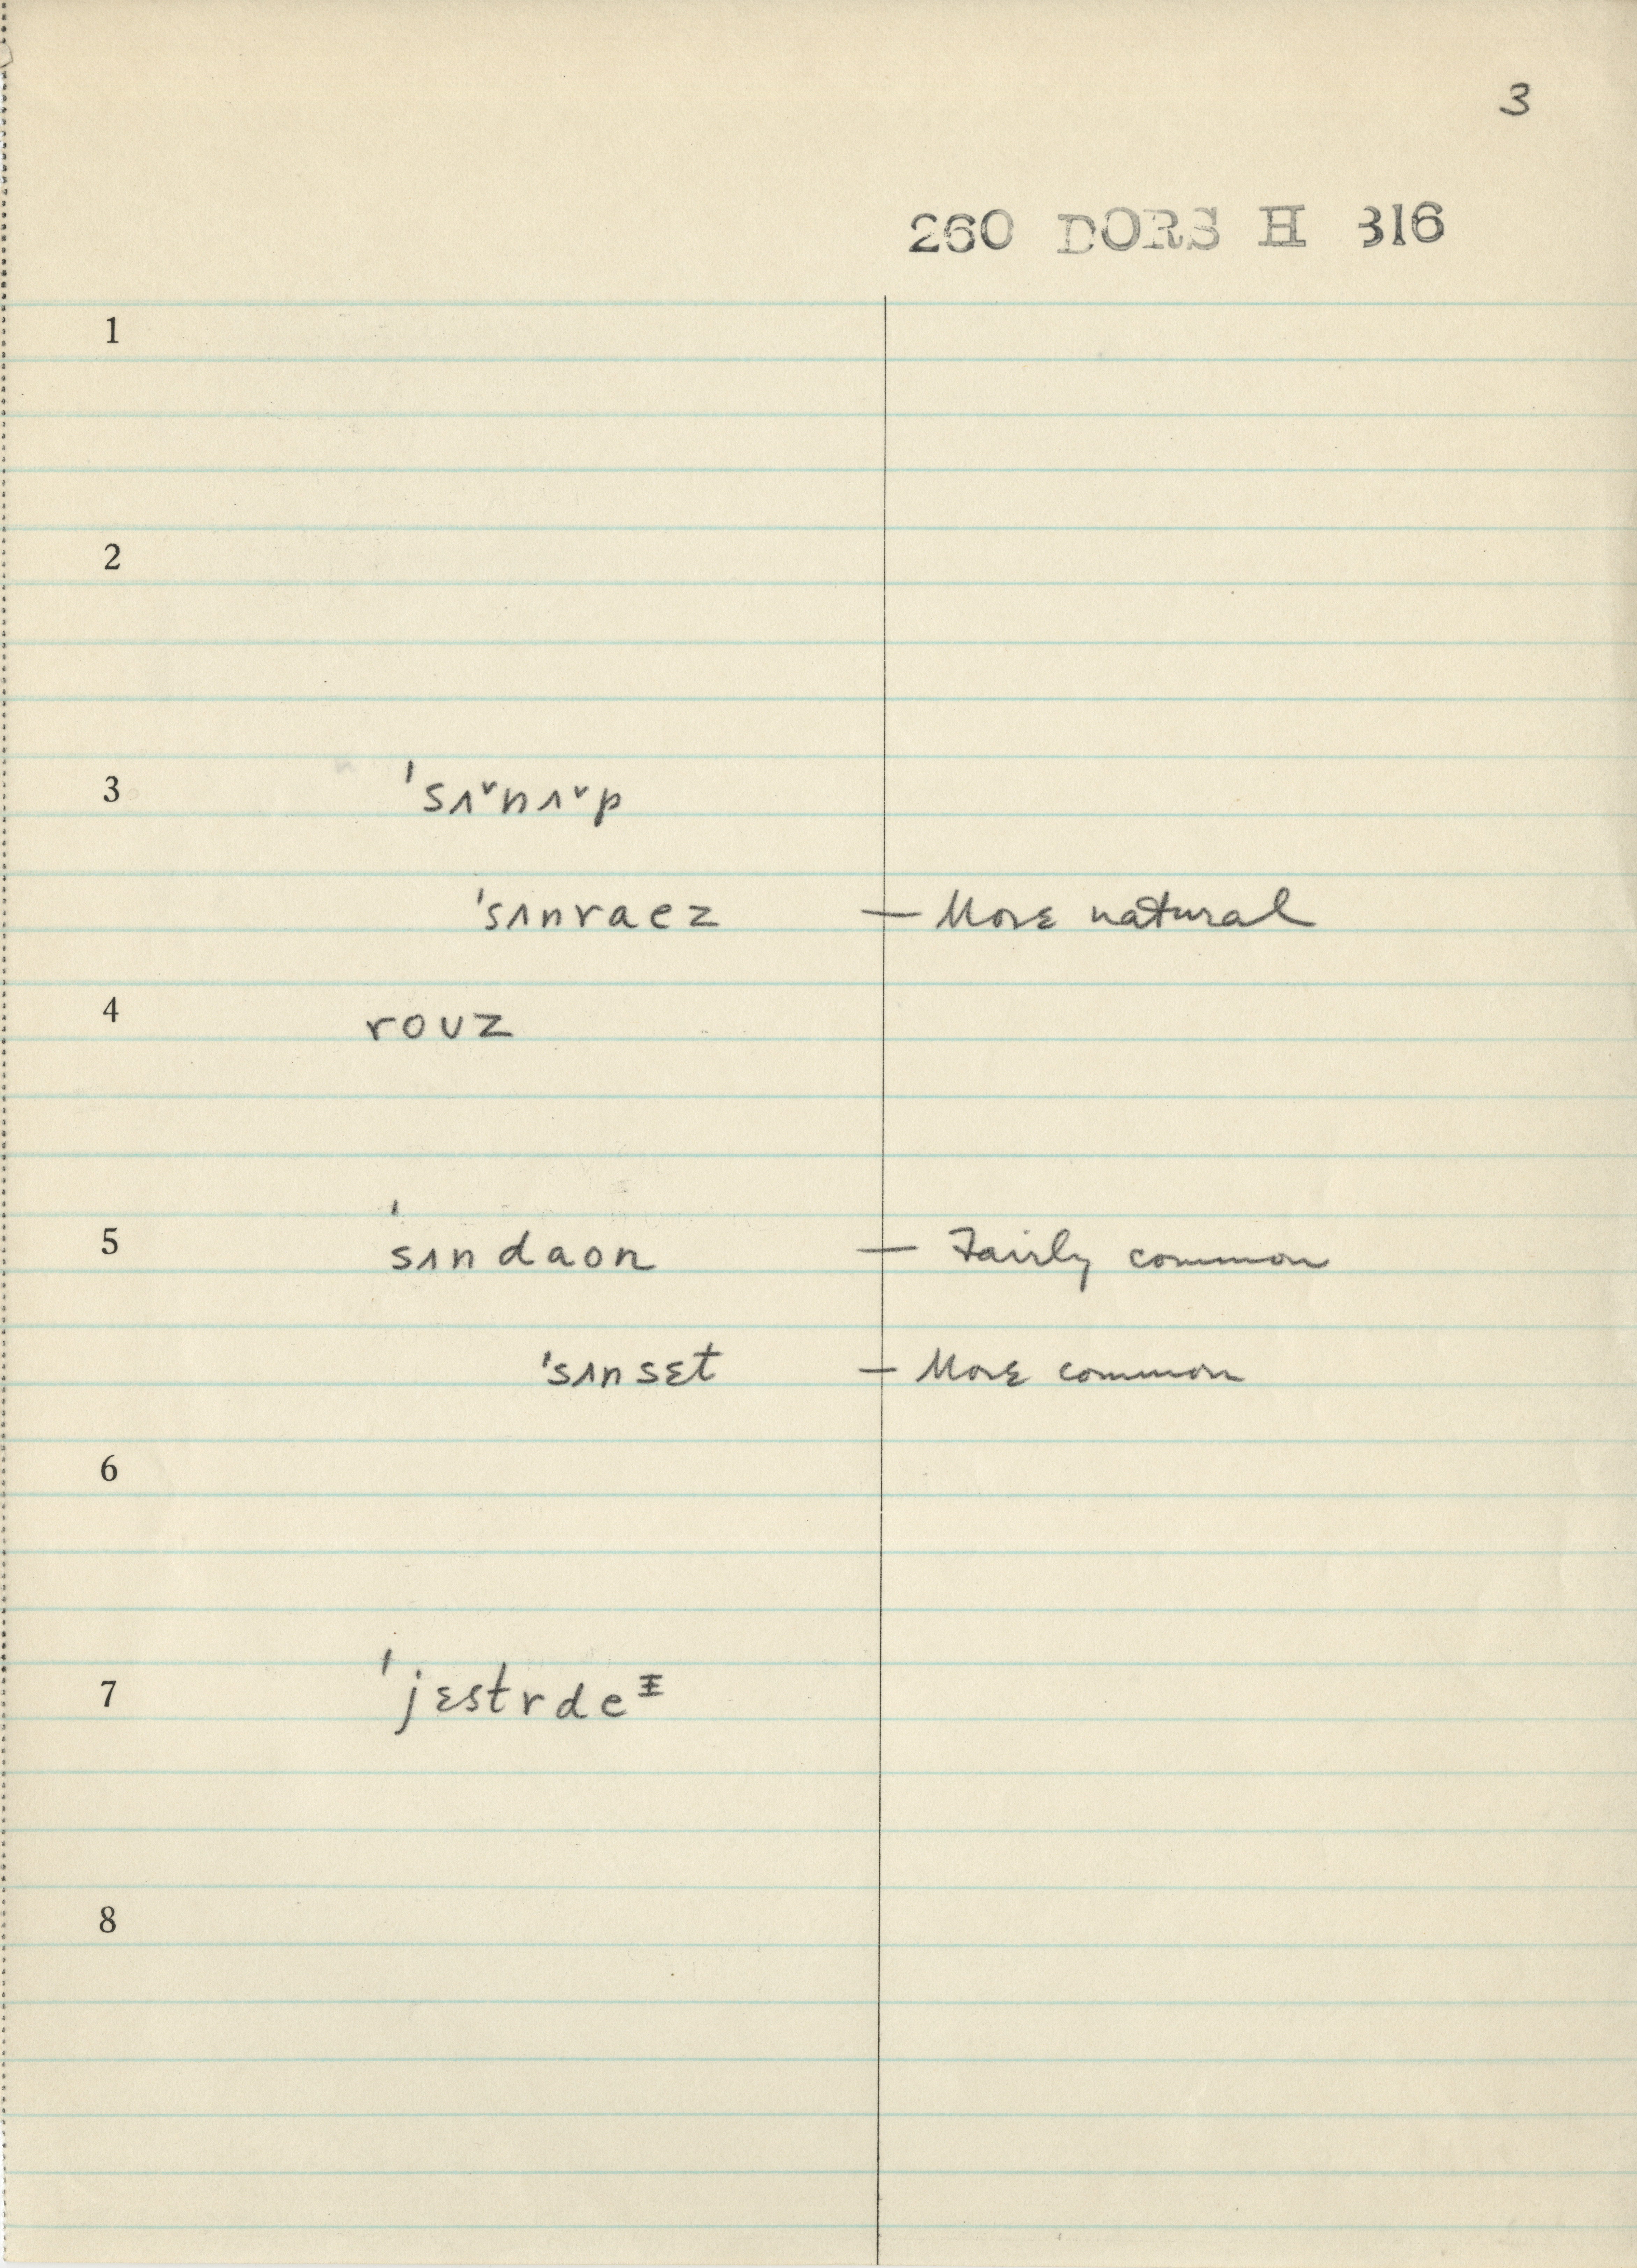 3
260 DORS H 316
1
2
3 ˈsʌ˅nʌ˅p
ˈsʌnraez — More natural
4 roʊz
5 ˈsʌndaon — Fairly common
ˈsʌnsɛt — More common
6
7 ˈjɛstrdeᵻ
8